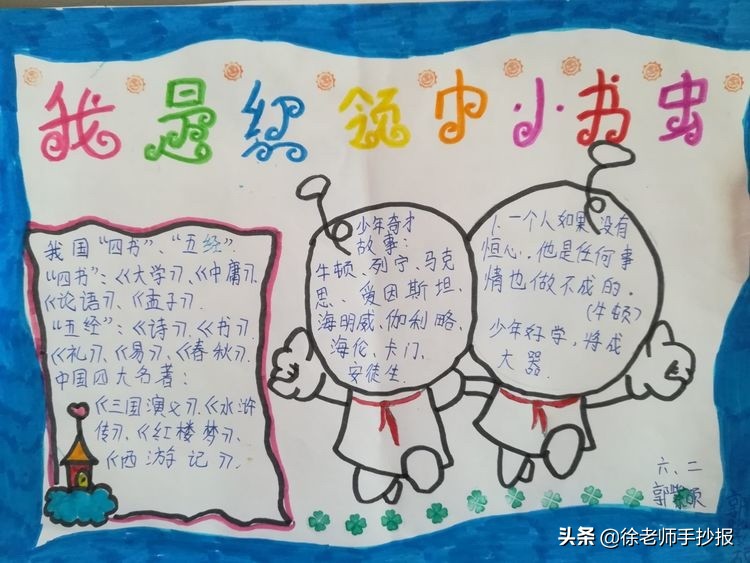 我是红领巾小书虫
我国“四书”、“五经”
“四书”：《大学》、《中庸》、
《论语》、《孟子》。
“五经”：《诗》、《书》、
《礼》、《易》、《春秋》。
中国四大名著：
《三国演义》、《水浒
传》、《红楼梦》、
《西游记》。
少年奇才
故事：
牛顿、列宁、马克
思、爱因斯坦、
海明威、伽利略、
海伦、卡门、
安徒生、
1、一个人如果没有
恒心，他是任何事
情也做不成的。
（牛顿）
少年好学，将成
大器
六、二
头条 @徐老师手抄报